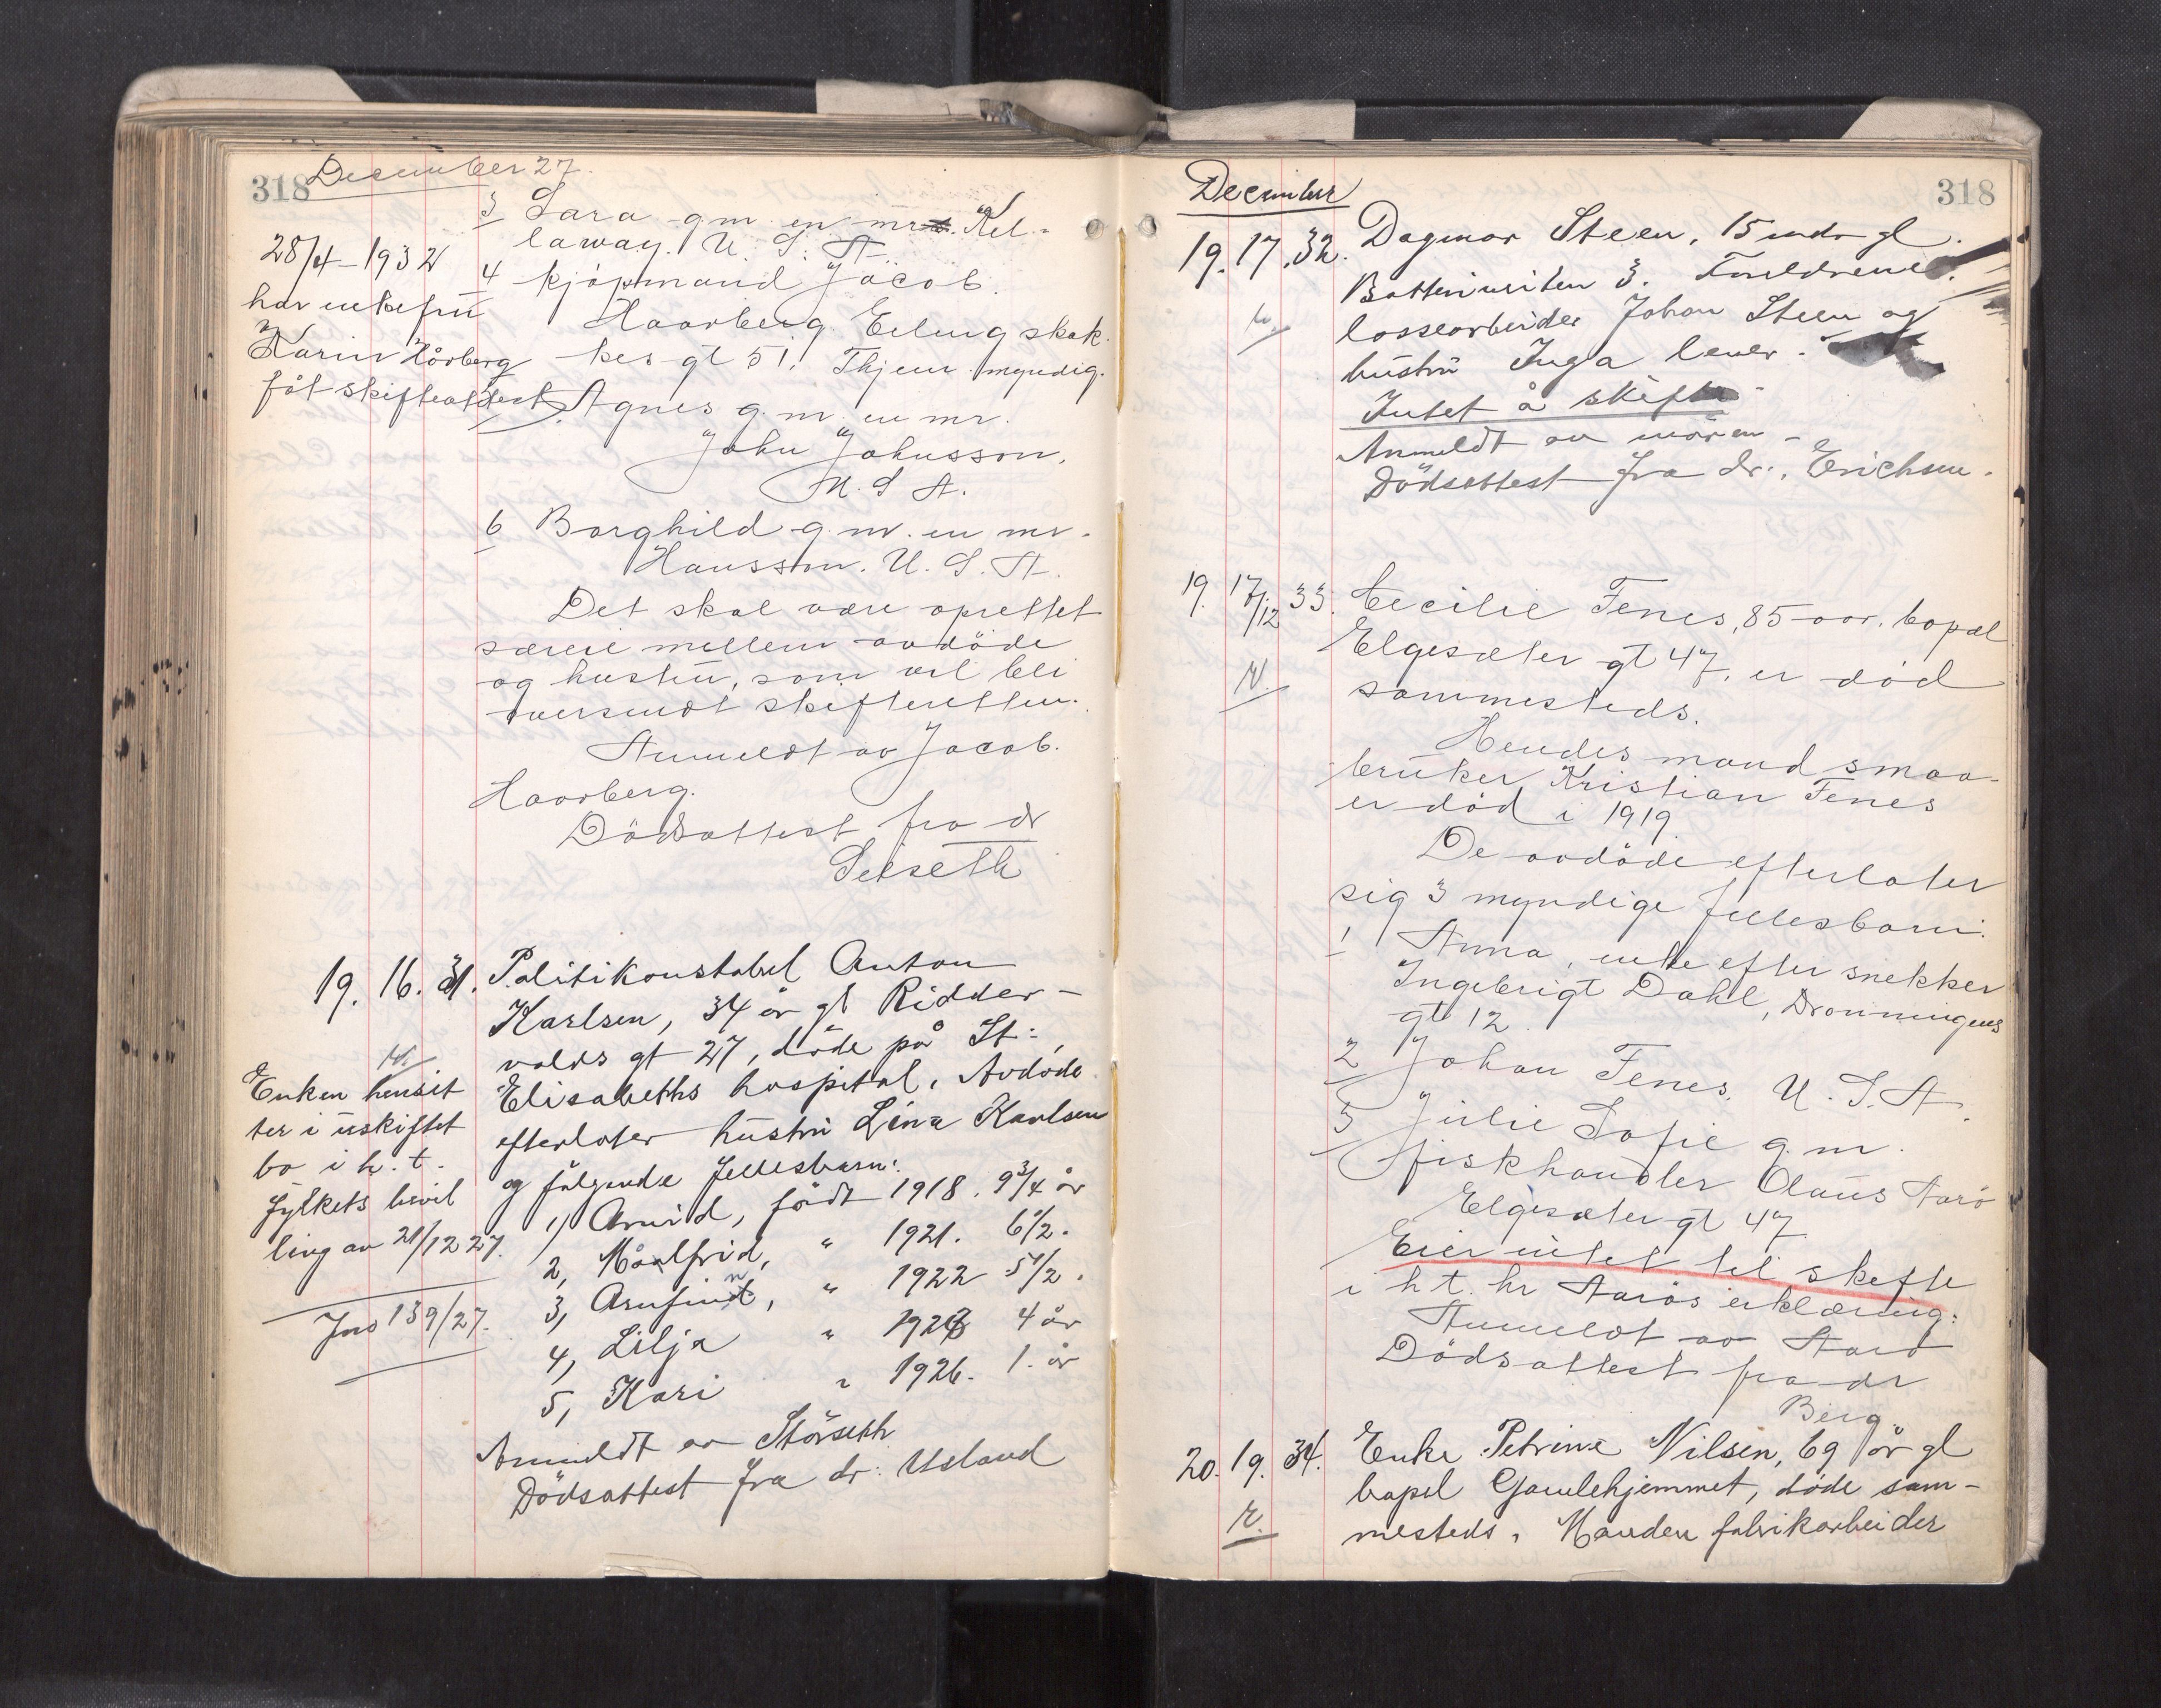 318 December 27.
3 Sara g.m. en mr. Kel-
laway. U. S. A.
4 kjøpmand Jacob
Haarberg. Erling skak-
kes gt 51. Thjem. myndig.
5. Agnes g. m. en mr.
John Johnsson,
U. S. A.
6 Borghild g. m. en mr.
Hansson. U. S. A.
Det skal være oprettet
særeie mellem avdöde
og hustru, som vil bli
oversendt skifteretten.
Anmeldt av Jacob
Haarberg.
Dödsattest fra dr
Seiseth
28/4-1932
har enkefru
Karin Hårberg
fåt skifteattest
19. 16. 31. Politikonstabel Anton
Karlsen, 34 år gl Ridder-
volds gt 27, döde på St.
Elisabeths hospital. Avdöde
efterlater hustru Lina Karlsen
og fölgende fellesbarn:
1, Arvid, födt 1918. 9 3/4 år
2, Målfrid, " 1921. 6 1/2.
3, Arnfinn, " 1922 5 1/2.
4, Lilja " 1923 4 år
5, Kari " 1926. 1. år
Anmeldt av Störseth
Dödsattest fra dr. Usland
N.
Enken hensit
ter i uskiftet
bo i h. t.
fylkets bevil
ling av 21/12 27.
Jno 139/27.
December 318
19. 17. 32. Dagmar Steen, 15 mdr gl.
Batteriveiten 3. Foreldrene
lossearbeider Johan Steen og
hustru Inga lever.
Intet å skifte
Anmeldt av moren
Dödsattest fra dr. Erichsen.
19. 17/12 33. Cecilie Fenes, 85 aar. bopæl
Elgesæter gt 47. er död
N sammesteds.
Hendes mand smaa-
bruker Kristian Fenes
er död i 1919.
De avdöde efterlater
sig 3 myndige fellesbarn:
1 Anna, enke efter snekker
Ingebrigt Dahl, Dronningens
gt 12.
2 Johan Fenes. U. S. A.
3 Julie Sofie g. m.
fiskhandler Olaus Aarö
Elgesæter gt 47
Eier intet til skifte
i h t. hr Aarös erklæring.
Anmeldt av Aarö
Dödsattest fra dr
Berg.
20. 19. 34. Enke Petrine Nilsen, 69 år gl
bopel Gamlehjemmet, döde sam-
mesteds. Manden fabrikarbeider